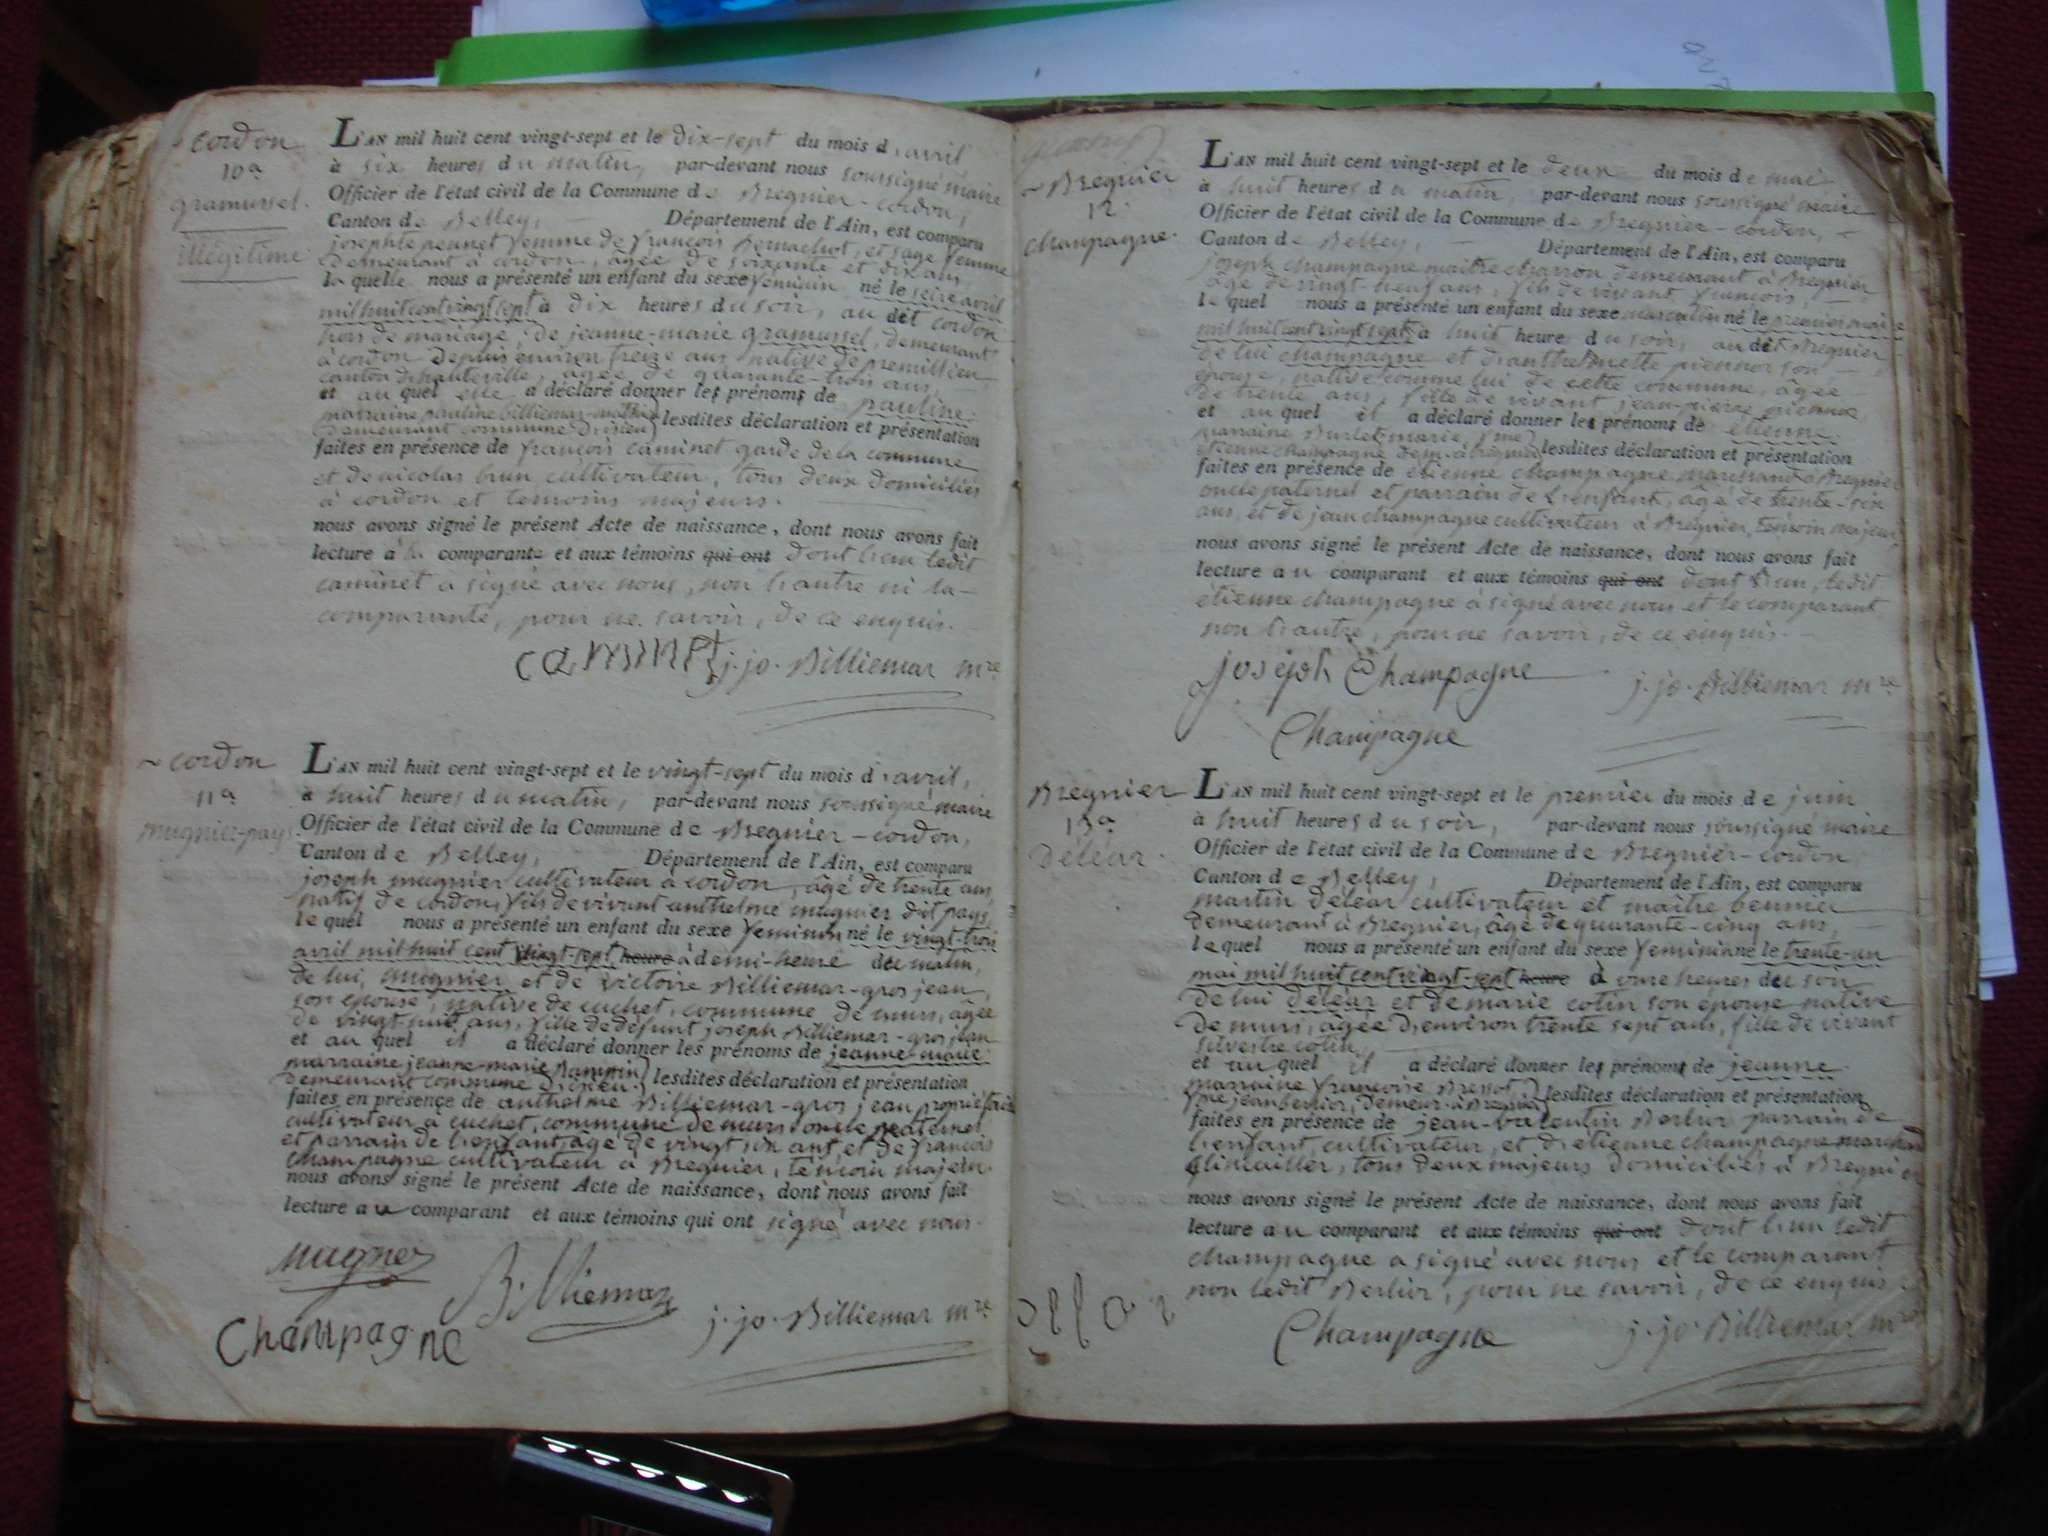 cordon
10a
gramussel.
illégitime
L'AN mil huit cent vingt-sept et le dix-sept du mois d'avril
à six heures du matin, par-devant nous soussigné maire
Officier de l'état civil de la Commune de Bregnier-cordon,
Canton de Belley, Département de l'Ain, est comparu
josephte peunet femme de françois Bernachot, et sage femme
demeurant à cordon, âgée de soixante et dix ans
laquelle nous a présenté un enfant du sexe feminin né le seize avril
mil huit cent vingt sept à dix heures du soir, au dit cordon
hors de mariage, de jeanne-marie gramussel, demeurant
à cordon depuis environ treize ans native de premillieu,
canton d'hauteville, âgée de quarante-trois ans,
et au quel elle a déclaré donner les prénoms de pauline.
marraine pauline Billiemaz-mathieu
demeurant commune d'izieu lesdites déclaration et présentation
faites en présence de françois caminet garde de la commune
et de nicolas brun cultivateur, tous deux domiciliés
à cordon et temoins majeurs.
nous avons signé le présent Acte de naissance, dont nous avons fait
lecture à la comparante et aux témoins qui ont dont l'un ledit
caminet a signé avec nous, non l'autre ni la
comparante, pour ne savoir, de ce enquis.
caminet j. jo. Billiemaz mre
~ cordon
11a
mugnier-pays
L'AN mil huit cent vingt-sept et le vingt-sept du mois d'avril,
à huit heures du matin, par-devant nous soussigné maire
Officier de l'état civil de la Commune de Bregnier-cordon,
Canton de Belley, Département de l'Ain, est comparu
joseph mugnier cultivateur à cordon, âgé de trente ans,
natif de cordon, fils de vivant anthelme mugnier dit pays,
lequel nous a présenté un enfant du sexe feminin né le vingt-trois
avril mil huit cent vingt-sept heure à demi-heure du matin,
de lui, mugnier et de victoire Billiemaz-gros jean,
son epouse, native de cuchet, commune de murs, âgée
de vingt-huit ans, fille de défunt joseph Billiemaz-gros jean
et au quel il a déclaré donner les prénoms de jeanne marie
marraine jeanne-marie
demeurant commune d'izieu. lesdites déclaration et présentation
faites en présence de anthelme Billiemaz-gros jean propriétaire
cultivateur à cuchet, commune de murs oncle maternel
et parrain de l'enfant, âgé de vingt six ans et de françois
champagne cultivateur à Bregnier, témoin majeur.
nous avons signé le présent Acte de naissance, dont nous avons fait
lecture au comparant et aux témoins qui ont signé avec nous.
Mugnier
Billiemaz
j. jo. Billiemaz mre
Champagne
~ Bregnier
12
champagne.
L'AN mil huit cent vingt-sept et le deux du mois de mai
à huit heures du matin, par-devant nous soussigné maire
Officier de l'état civil de la Commune de Bregnier-cordon,
Canton de Belley, Département de l'Ain, est comparu
joseph champagne maître charron demeurant à Bregnier
âgé de vingt-neuf ans, fils de vivant françois,
lequel nous a présenté un enfant du sexe masculin né le premier mai
mil huit cent vingt sept à huit heure du soir, au dit Bregnier
de lui champagne et d'anthelmette son
épouse, native comme lui de cette commune, âgée
de trente ans, fille de vivant jean-pierre
et au quel il a déclaré donner les prénoms de etienne.
marraine Burlet marie, fme
etienne champagne dem. à Bregnier lesdites déclaration et présentation
faites en présence de etienne champagne marchand à Bregnier
oncle paternel et parrain de l'enfant, âgé de trente-six
ans, et de jean champagne cultivateur à Bregnier, temoin majeur,
nous avons signé le présent Acte de naissance, dont nous avons fait
lecture au comparant et aux témoins qui ont dont l'un, ledit
etienne champagne a signé avec nous et le comparant
non l'autre, pour ne savoir, de ce enquis.
joseph Champagne j. jo. Billiemaz mre
Champagne
Bregnier
13a
déléar.
L'AN mil huit cent vingt-sept et le premier du mois de juin
à huit heures du soir, par-devant nous soussigné maire
Officier de l'état civil de la Commune de Bregnier-cordon
Canton de Belley, Département de l'Ain, est comparu
martin déléar cultivateur et maître
demeurant à Bregnier, âgé de quarante-cinq ans,
lequel nous a présenté un enfant du sexe feminin né le trente-un
mai mil huit cent vingt-sept heure à onze heures du soir
de lui déléar et de marie cotin son épouse native
de murs, âgée d'environ trente sept ans, fille de vivant
silvestre cotin,
et au quel il a déclaré donner les prénoms de jeanne.
marraine françoise Bressot
fme jean demeur. à Bregnier lesdites déclaration et présentation
faites en présence de jean-valentin Berlior parrain de
l'enfant, cultivateur, et d'etienne champagne marchand
clincailler, tous deux majeurs domiciliés à Bregnier
nous avons signé le présent Acte de naissance, dont nous avons fait
lecture au comparant et aux témoins qui ont dont l'un ledit
champagne a signé avec nous et le comparant
non ledit Berlior, pour ne savoir, de ce enquis.
Champagne j. jo. Billiemaz mre